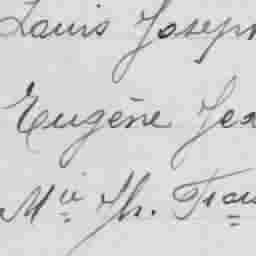 Louis Joseph
Eugène Jea
Mie Th. Fran